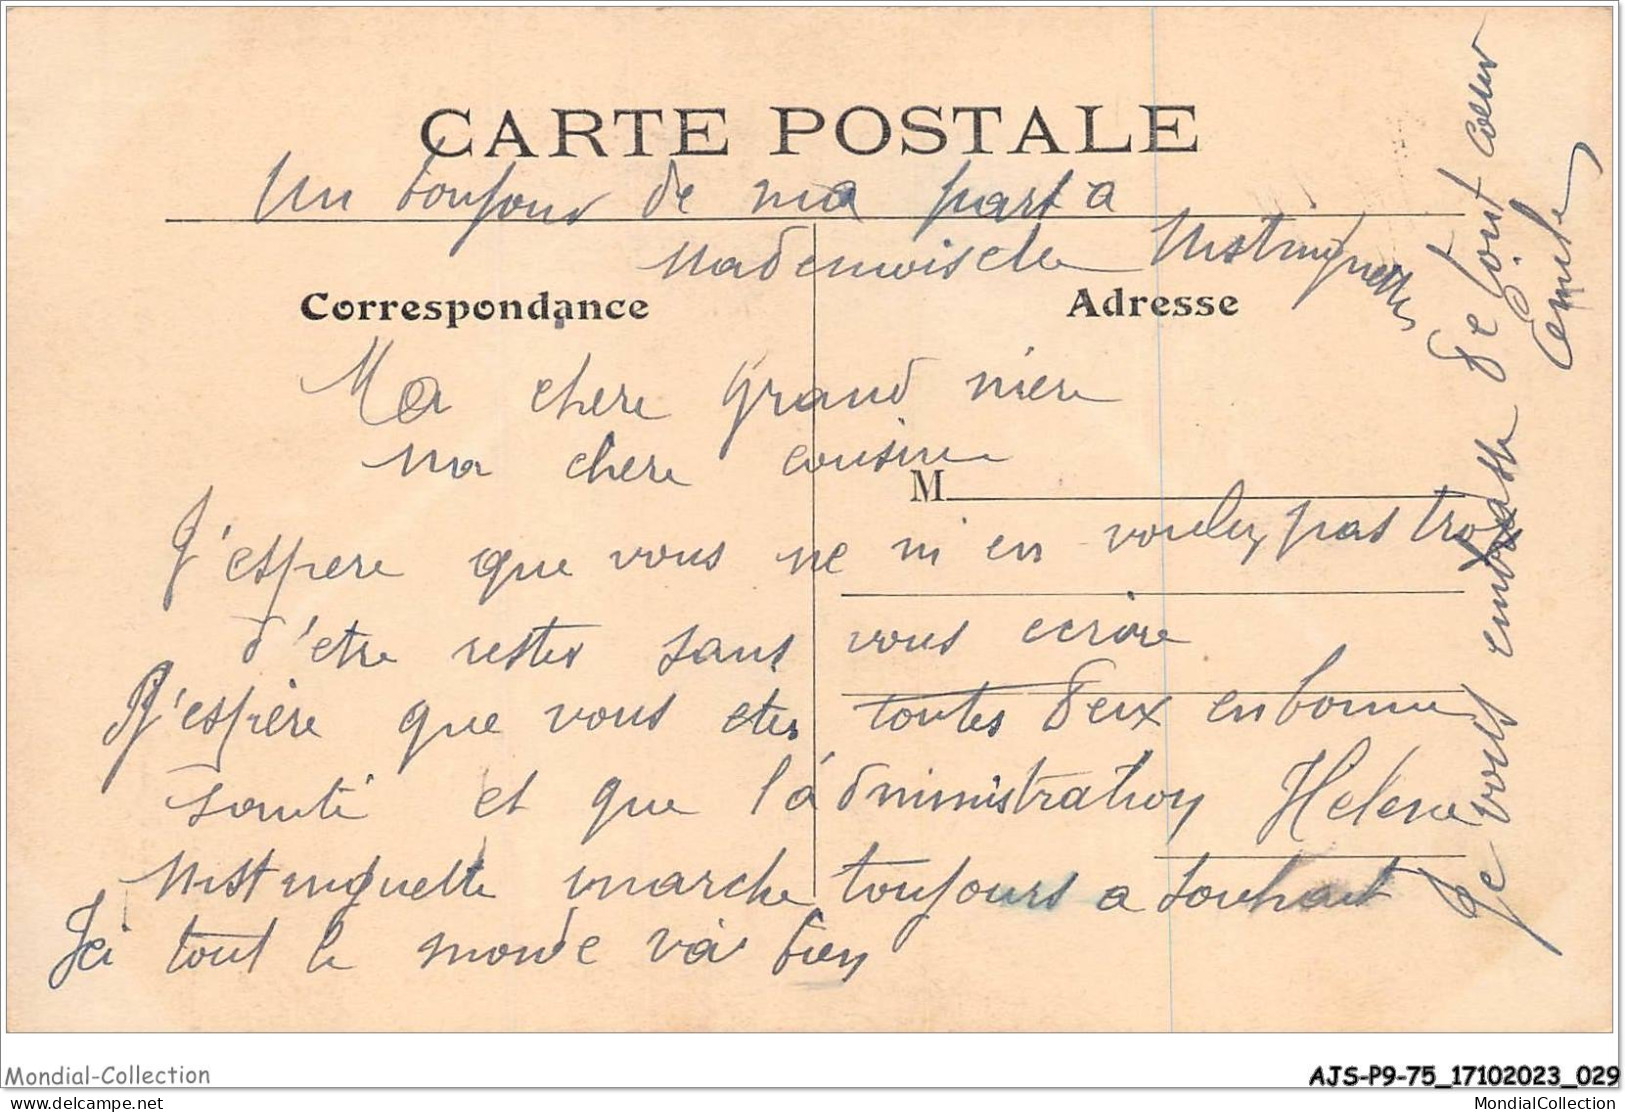 CARTE POSTALE
Un bonjour de ma part a
Mademoiselle Mistinguette
Correspondance
Adresse
Ma chere grand mère
ma chere cousine
M
J'espere que vous ne m'en voulez pas trop
d'etre restes sans vous ecrire
J'espère que vous etes toutes deux en bonne
santé et que l'administration Helene
Mistinguette marche toujours a souhait
Ici tout le monde va bien
Je vous embrasse de tout coeur
Emile
Mondial-Collection
AJS-P9-75_17102023_029
delcampe.net
MondialCollection